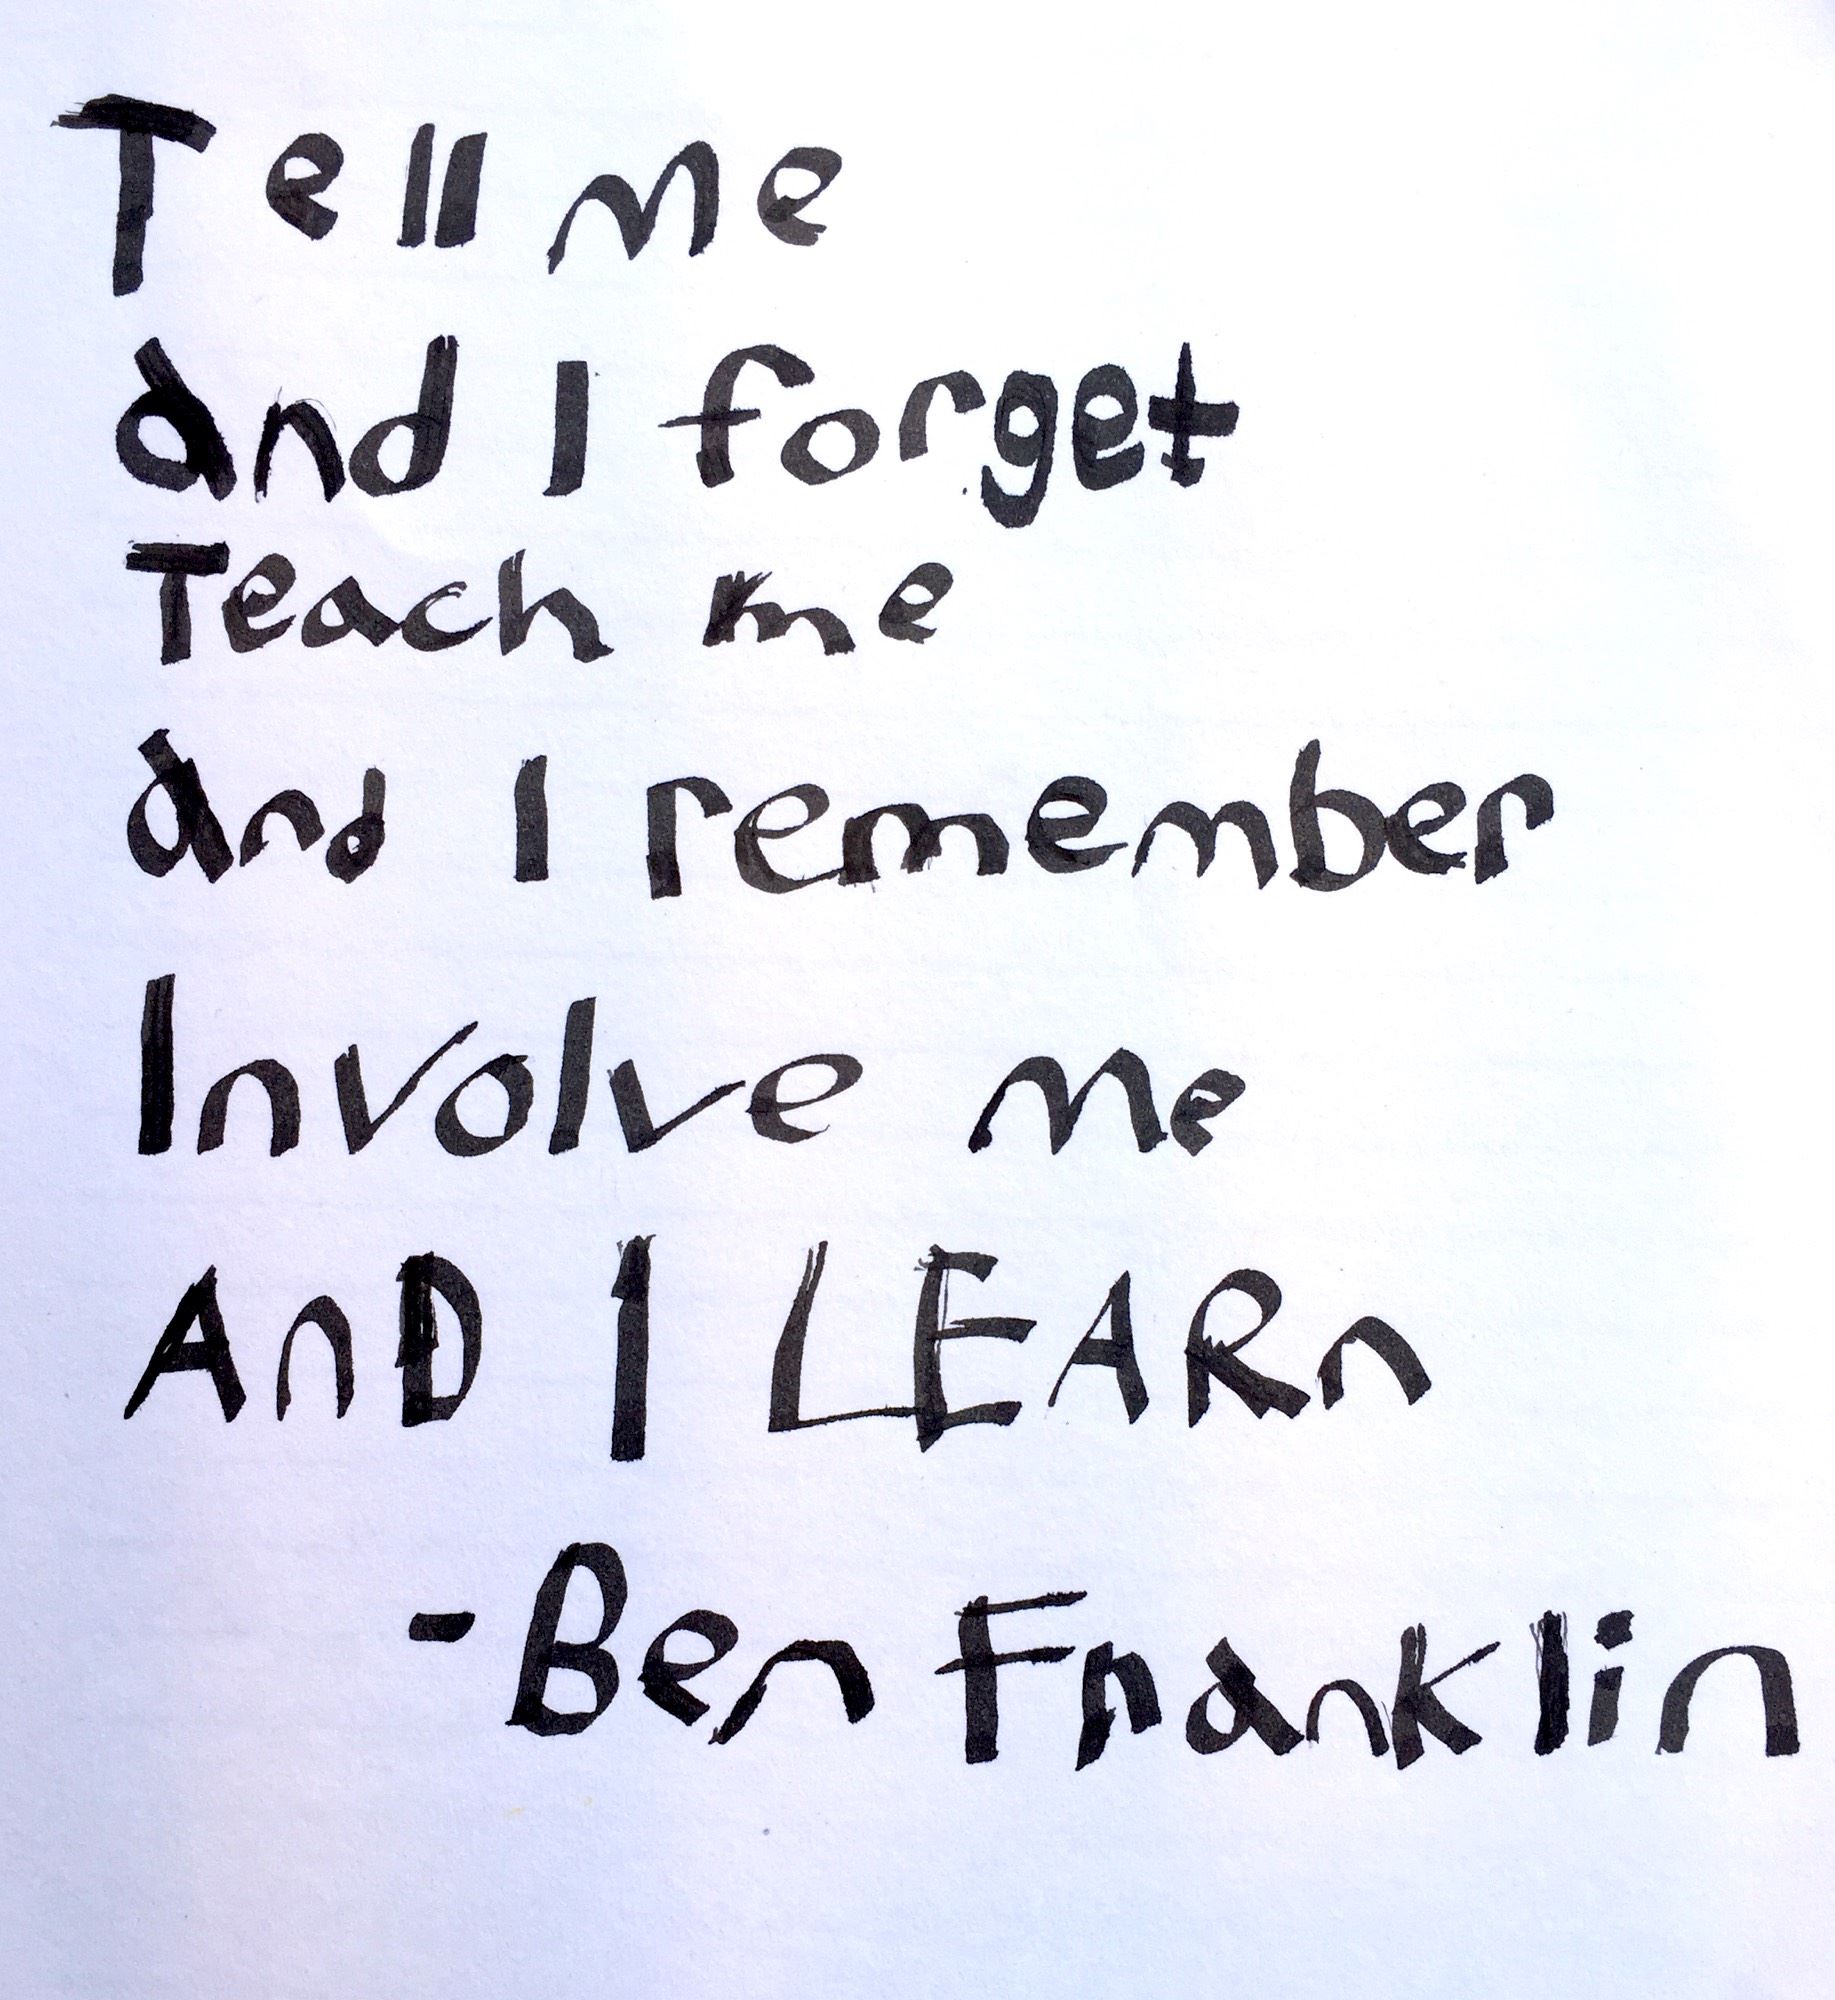 Tell me
and I forget
Teach me
and I remember
Involve Me
AnD I LEARn
-Ben Franklin